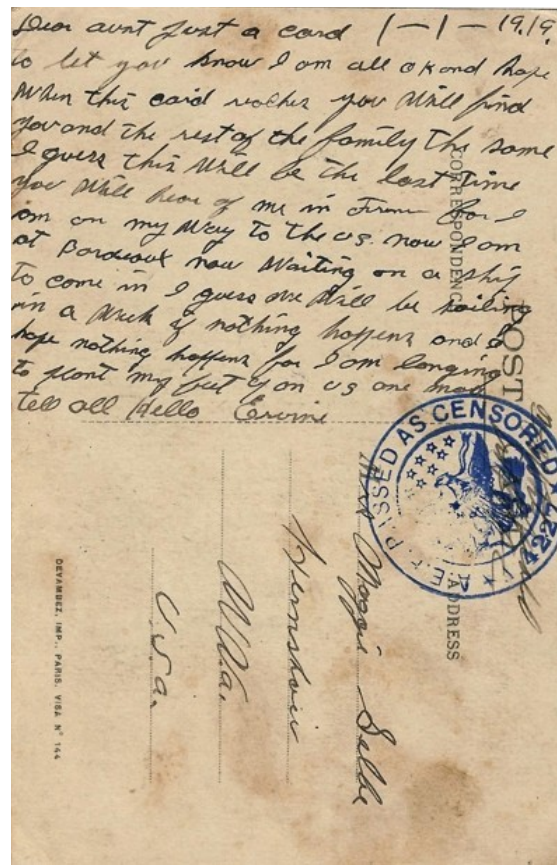 Dear aunt Just a card 1-1-1919.
to let you know I am all ok and hope
When this card reches you Will find
You and the rest of the family the same
I guess this Will be the last time
you Will hear of me in for I
am on my Way to the us. now I am
at Bordeaux now Waiting on a ship
to come in I guess we Will be sailing
in a Week if nothing happens and I
hope nothing happens for I am longing
to plant my feet on us one more
tell all Hello Ervine
CORRESPONDENCE
POST
ADDRESS
A.E.F. PASSED AS CENSORED
Miss Maggie
W.Va.
U.S.a.
DEVAMBEZ, IMP., PARIS. VISA N° 144